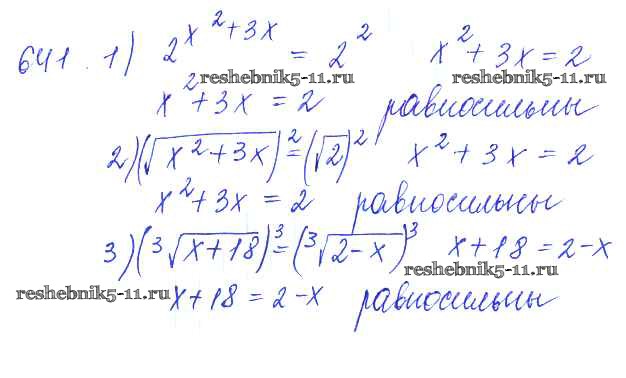 641. 1) 2^{x^2+3x} = 2^2    x^2+3x=2
reshebnik5-11.ru    reshebnik5-11.ru
x^2+3x=2    равносильны
2) (√(x^2+3x))^2=(√2)^2    x^2+3x=2
x^2+3x=2    равносильны
3) (∛(x+18))^3=(∛(2-x))^3    x+18=2-x
reshebnik5-11.ru
reshebnik5-11.ru x+18=2-x    равносильны